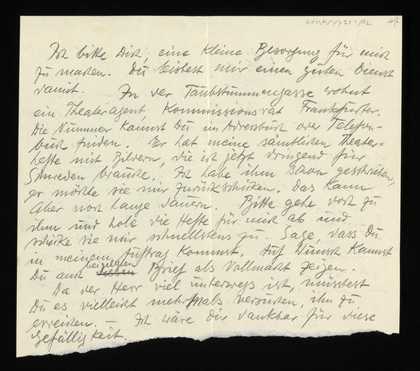 Ich bitte Dich, eine kleine Besorgung für mich
zu machen. Du leistest mir einen guten Dienst
damit. In der Taubstummengasse wohnt
ein Theateragent, Kommissionsrat Frankfurter.
Die Nummer kannst Du im Adressbuch oder Telefon-
buch finden. Er hat meine sämtlichen Theater-
hefte mit Bildern, die ich jetzt dringend für
Schweden brauche. Ich habe ihm schon geschrieben,
er möchte sie mir zurückschicken. Das kann
aber noch lange dauern. Bitte gehe dort zu
ihm und hole die Hefte für mich ab und
schicke sie mir schnellstens zu. Sage, dass Du
in meinem Auftrag kommst. Auf Wunsch kannst
Du auch beigelegten Brief als Vollmacht zeigen.
Da der Herr viel unterwegs ist, müsstest
Du es vielleicht mehrmals versuchen, ihn zu
erreichen. – Ich wäre dir dankbar für diese
Gefälligkeit.